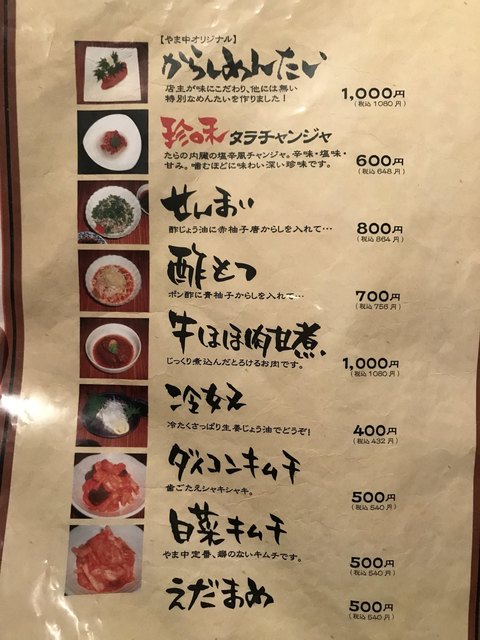 【やま中オリジナル】
からしめんたい
店主が味にこだわり、他には無い
特別なめんたいを作りました！
1,000円
(税込 1080 円)
珍味 タラチャンジャ
たらの内臓の塩辛風チャンジャ。辛味・塩味・
甘み。噛むほどに味わい深い珍味です。
600円
(税込 648 円)
せんまい
酢じょう油に赤柚子唐からしを入れて…
800円
(税込 864 円)
酢もつ
ポン酢に青柚子からしを入れて…
700円
(税込 756 円)
牛ほほ肉甘煮
じっくり煮込んだとろけるお肉です。
1,000円
(税込 1080 円)
冷奴
冷たくさっぱり生姜じょう油でどうぞ！
400円
(税込 432 円)
ダイコンキムチ
歯ごたえシャキシャキ。
500円
(税込 540 円)
白菜キムチ
やま中定番、癖のないキムチです。
500円
(税込 540 円)
えだまめ
500円
(税込 540 円)